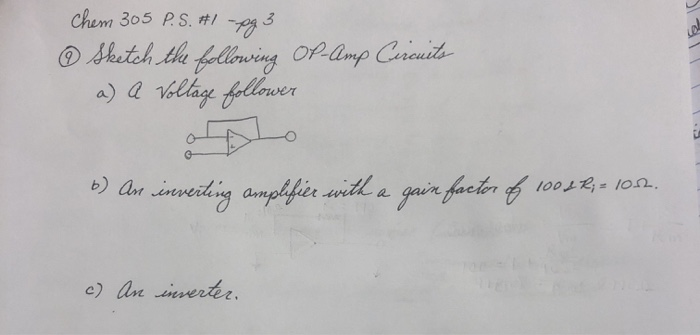 Chem 305 P.S. #1 -pg 3
⑨ Sketch the following OP-Amp Circuits
a) A Voltage follower
b) An inverting amplifier with a gain factor of 100 & Ri = 10Ω.
c) An inverter.